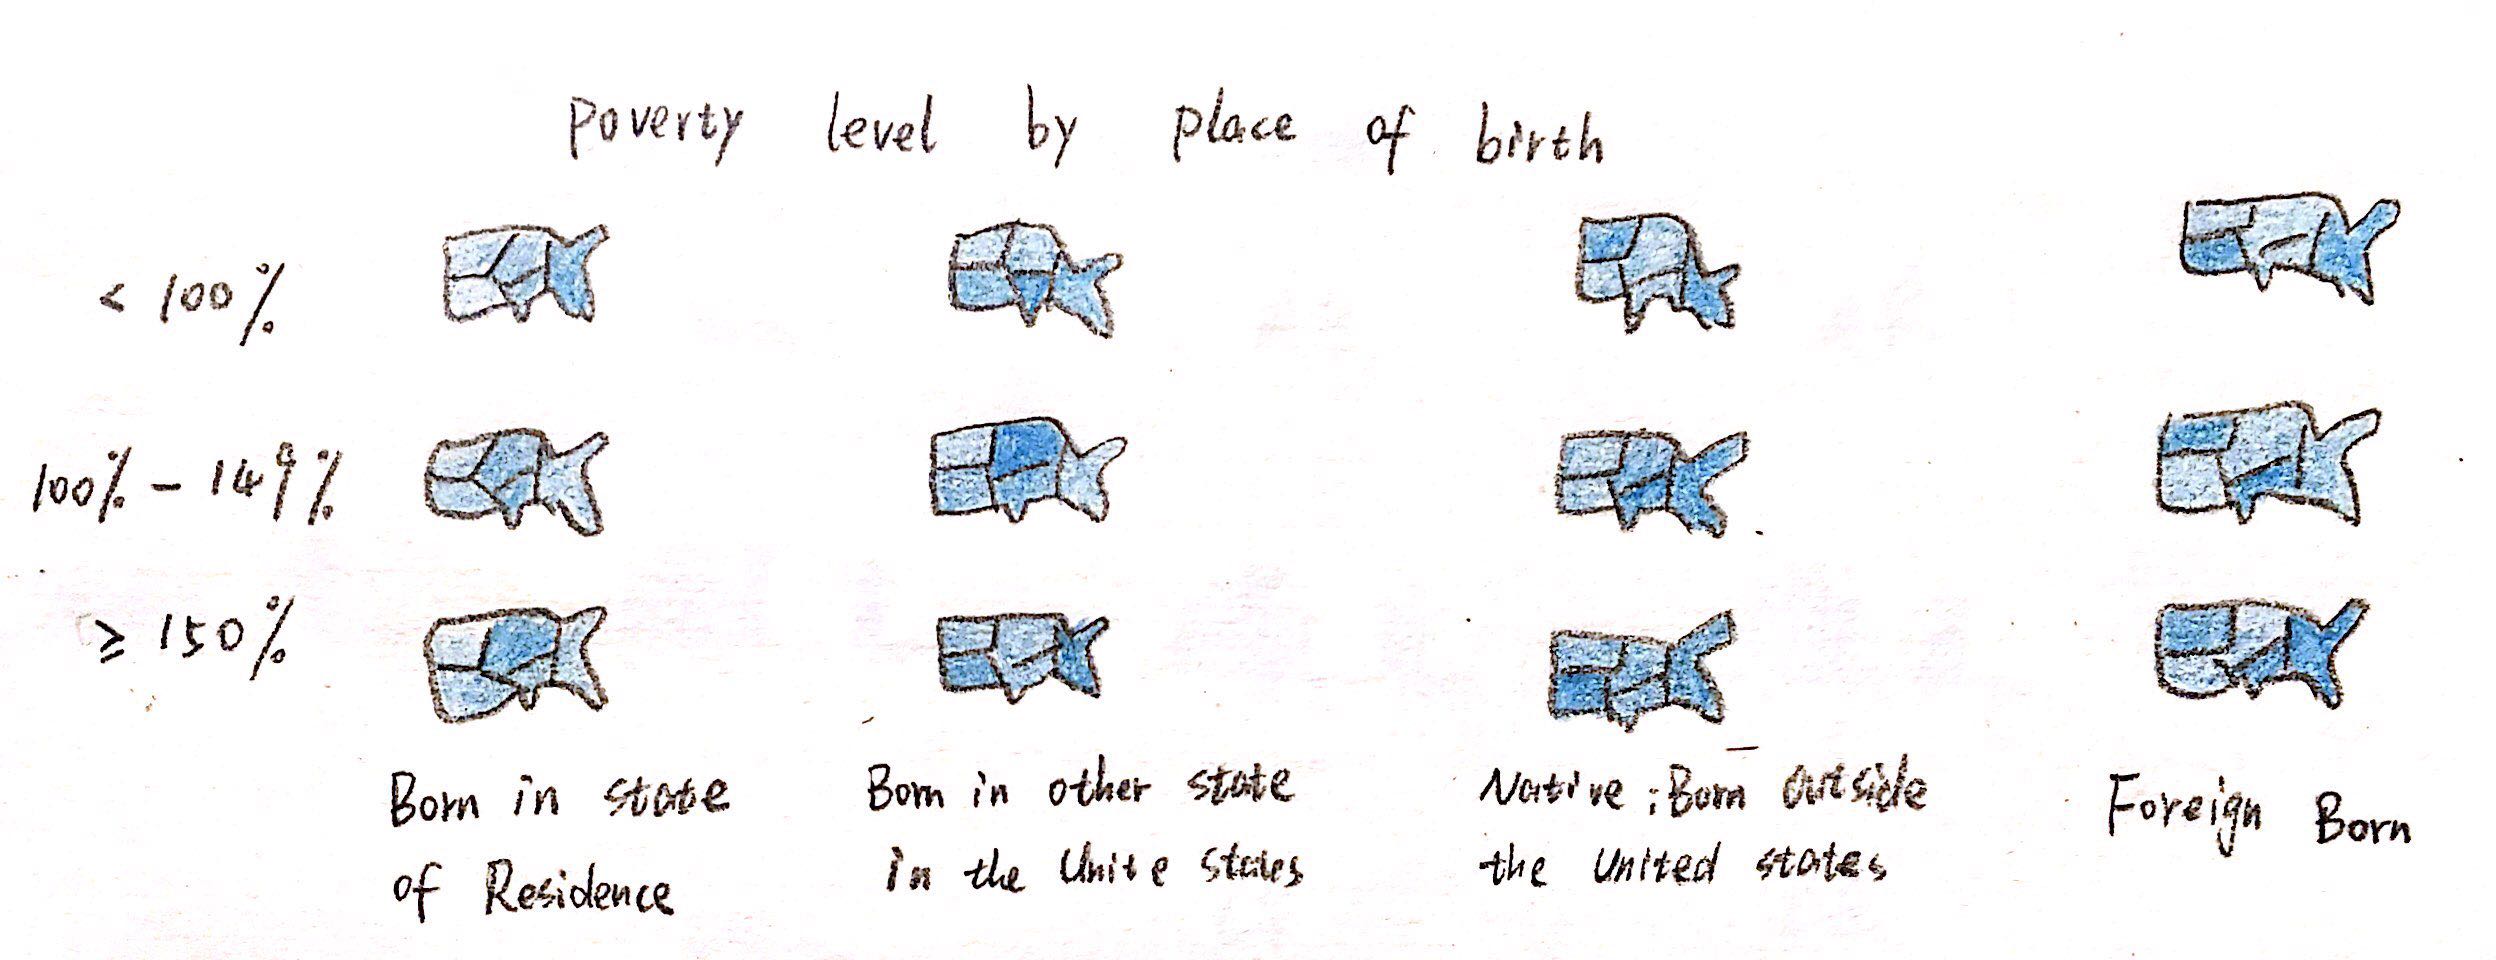 Poverty level by place of birth
< 100%
100% - 149%
≥ 150%
Born in state
of Residence
Born in other state
in the Unite states
Native : Born outside
the United states
Foreign Born